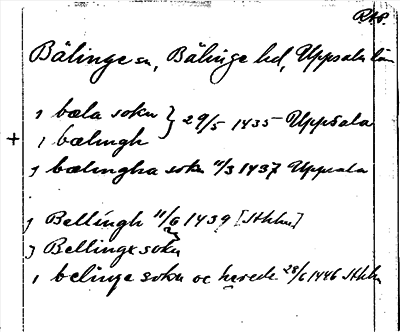 RAP.
Bälinge sn, Bälinge hd, Uppsala län
j bæla sokn } 29/5 1435 Uppsala
+ j bælingh
j bælingha sokn 11/3 1437 Uppsala
j Bellingh 11/6 1439 [Sthlm]
j Bellinge sokn
j belinge sokn oc herede 28/6 1446 Sthlm